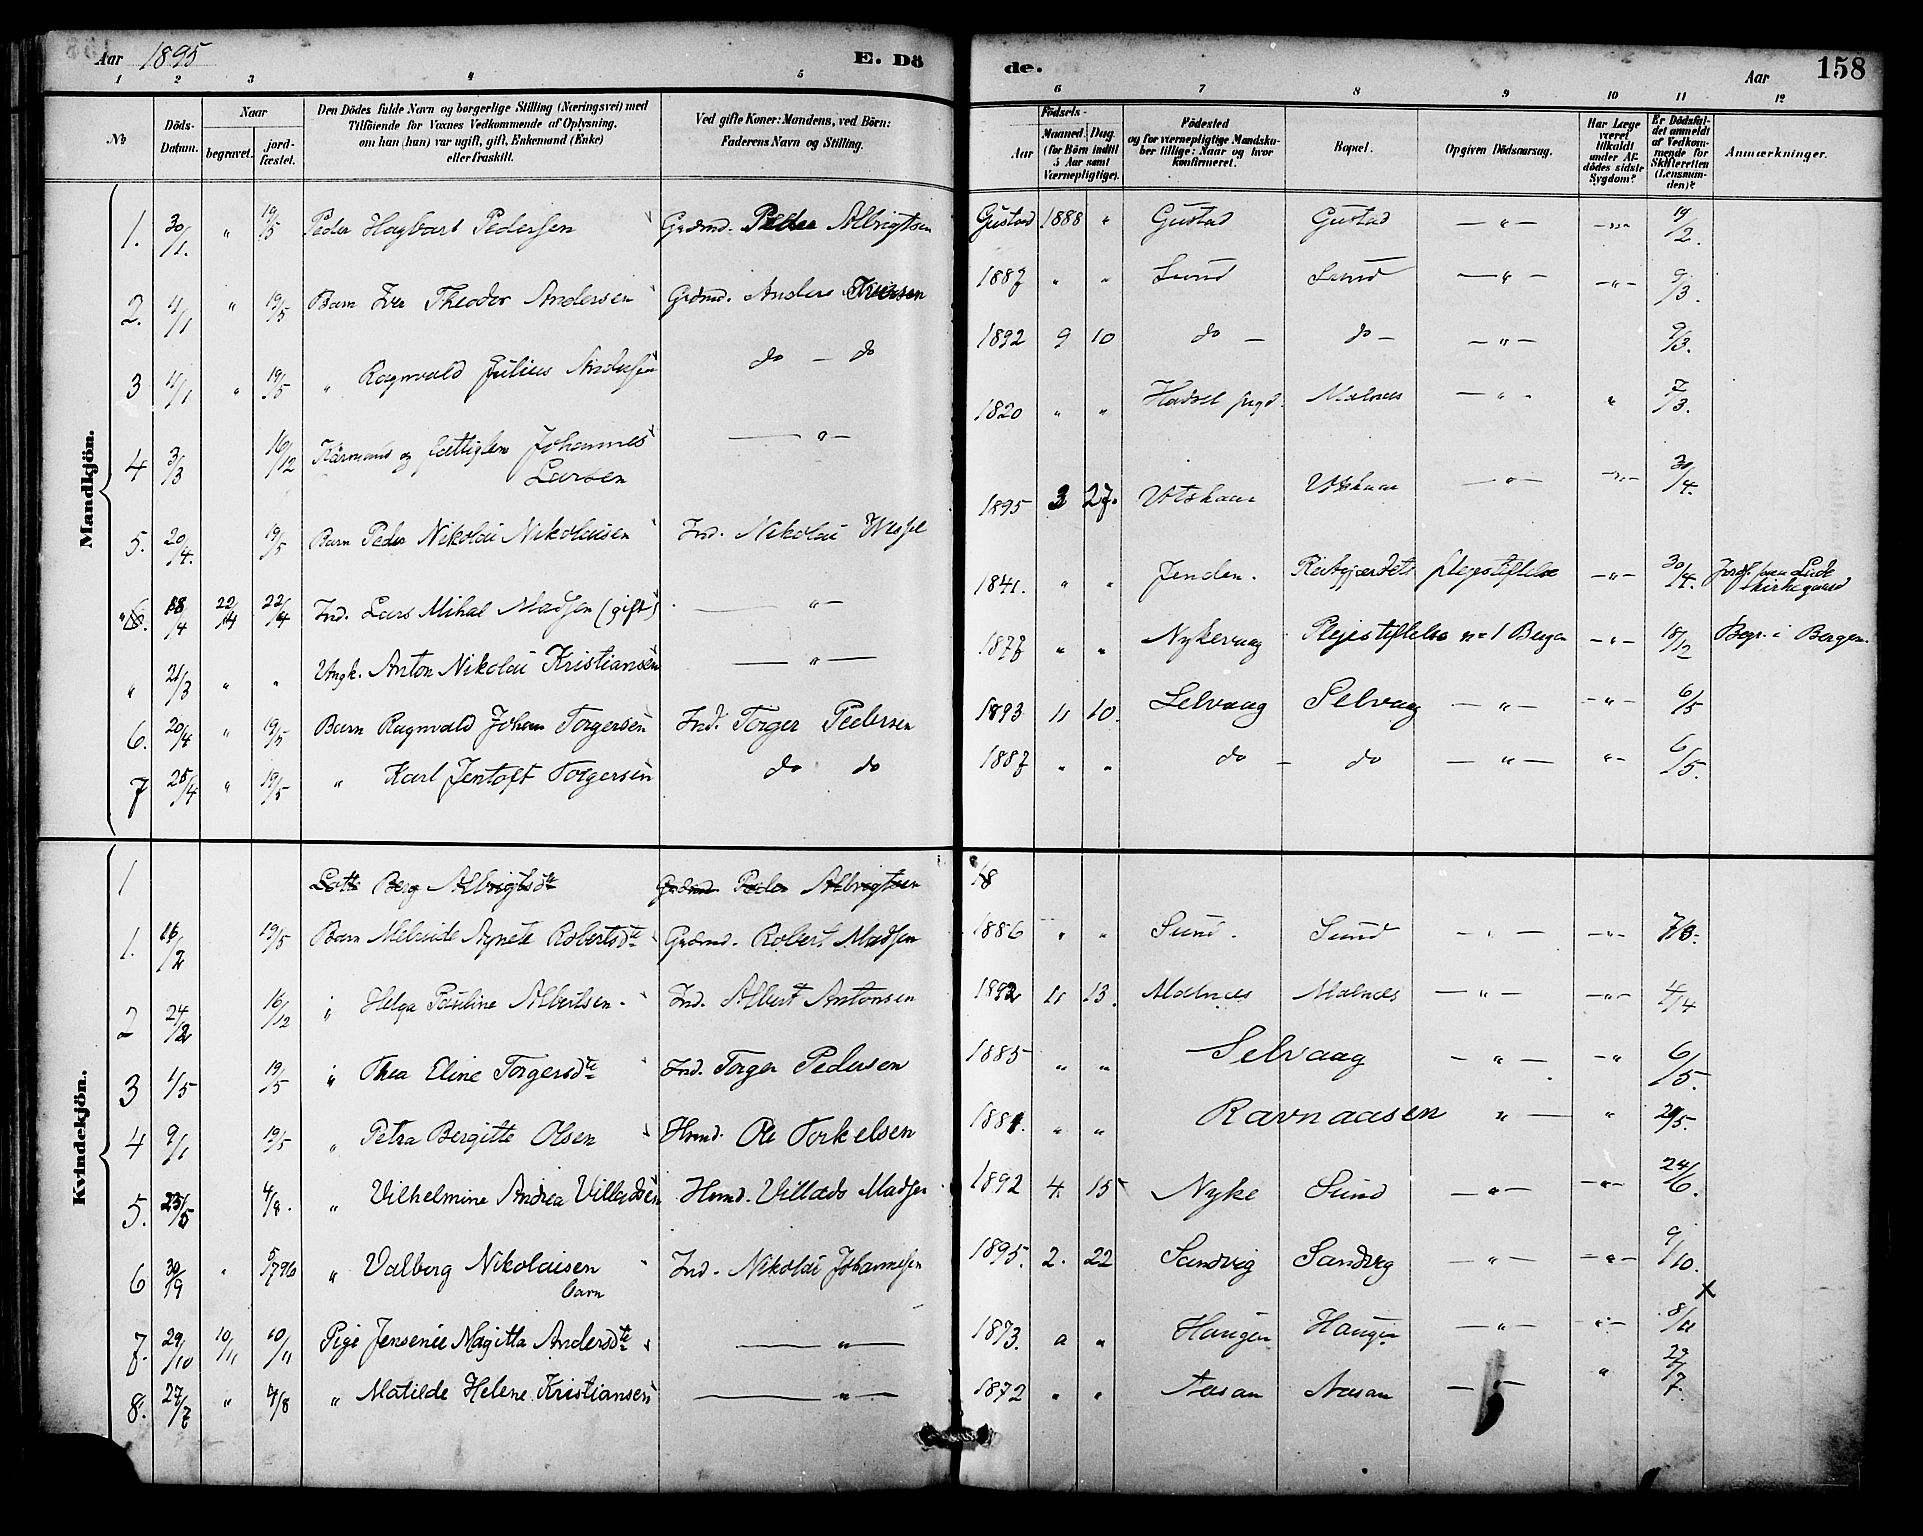 Aar 1895 E. Dö
1 2 3 4 5
No
Döds-
Datum.
Naar
begravet.
jord-
fæstet.
Den Dödes fulde Navn og borgerlige Stilling (Næringsvei) med
Tilföiende for Voxnes Vedkommende af Oplysning,
om han (hun) var ugift, gift, Enkemand (Enke)
eller fraskilt.
Ved gifte Koner: Mandens, ved Börn:
Faderens Navn og Stilling.
Mandkjön.
1. 30/1. " 19/5 Peder Hagbart Pedersen Grdmd. Peder Albrigtsen
2. 4/1 " 19/5 Barn Iver Theodor Andersen Grdmd. Anders Iversen
3 11/1 " 19/5 " Ragnvald Julius Andersen do — do
4 3/3 16/12 Kårmand og fattiglem Johannes — " —
Larsen
5. 20/4. 19/5 Barn Peder Nikolai Nikolaisen Ind. Nikolai Wessel
" 18/4 22/4 22/4 Ind. Lars Mihal Madsen (gift) — " —
" 21/3 " " Ungk. Anton Nikolai Kristiansen — " —
6. 20/4 " 19/5 Barn Ragnvald Johan Torgersen Ind. Torger Pedersen
7 25/4 " 19/5 " Karl Jentoft Torgersen do do
Kvindekjön.
1 Lotte Berg Albrigtsdtr Grdmd Peder Albrigtsen
1. 16/2 19/5 Barn Melvide Agnete Robertsdtr Grdmd. Robert Madsen
2 24/2 16/12 " Helga Pauline Albertsen. Ind. Albert Antonsen
3 1/5 19/5 " Thea Eline Torgersdtr Ind. Torger Pedersen
4 9/1 19/5 " Petra Bergitte Olsen Hmd. Ole Torkelsen
5. 23/5 4/8. " Vilhelmine Andrea Villadsen Hmd. Villads Madsen
6 30/9 " 5/7 96 " Valborg Nikolaisen Ind. Nikolai Johannesen
barn
7. 29/10 10/11 10/11 Pige Jensenie Magitta Andersdtr — " —
8. 27/7 " 4/8 " Matilde Helene Kristiansen — " —
de. Aar 158
6 7 8 9 10 11 12
Födsels-
Aar
Maaned. Dag.
(for Börn indtil
5 Aar samt
Værnepligtige).
Födested
og for værnepligtige Mandska-
ber tillige: Naar og hvor
konfirmeret.
Bopæl.
Opgiven Dödsaarsag.
Har Læge
været
tilkaldt
under Af-
dödes sidste
Sygdom?
Er Dödsfal-
det anmeldt
af Vedkom-
mende for
Skifteretten
(Lensman-
den)?
Anmærkninger.
Gustad 1888 " Gustad Gustad — " — — " — 19/2.
1887 " " Sund Sund — " — — " — 9/3.
1892 9 10 do — do — — " — 9/3.
1820 " " Hadsel prgd. Malnes — " — " 7/3.
1895 3 27. Utskaar Utskaar — " — — " — 30/4.
1841. " " Jenden. Reitgjerdets Plejestiftelse — " — 30/4. Jordf. paa Lade
Kirkegaard
1877 " " Nykevaag Plejestiftelse no 1 Bergen — " — 18/12 Begr. i Bergen.
1893 11 10. Selvaag Selvaag — " — — " — 6/5
1887 " " do — do — " — " — 6/5.
18
1886 " " Sund. Sund — " — — " — 7/3.
1892 11 13. Malnes Malnes — " — — " — 4/4
1885 " " Selvaag — " — — " 6/5.
1881. " " Ravnaasen " — " 29/5.
1892 4. 15 Nyke Sund — " — — " — 24/6.
1895. 2. 22 Sandvig Sandvig — " — — " — 9/10.
x
1873. " " Haugen Haugen — " — " — 8/11
1872 " " Aasan Aasan — — " 29/7.